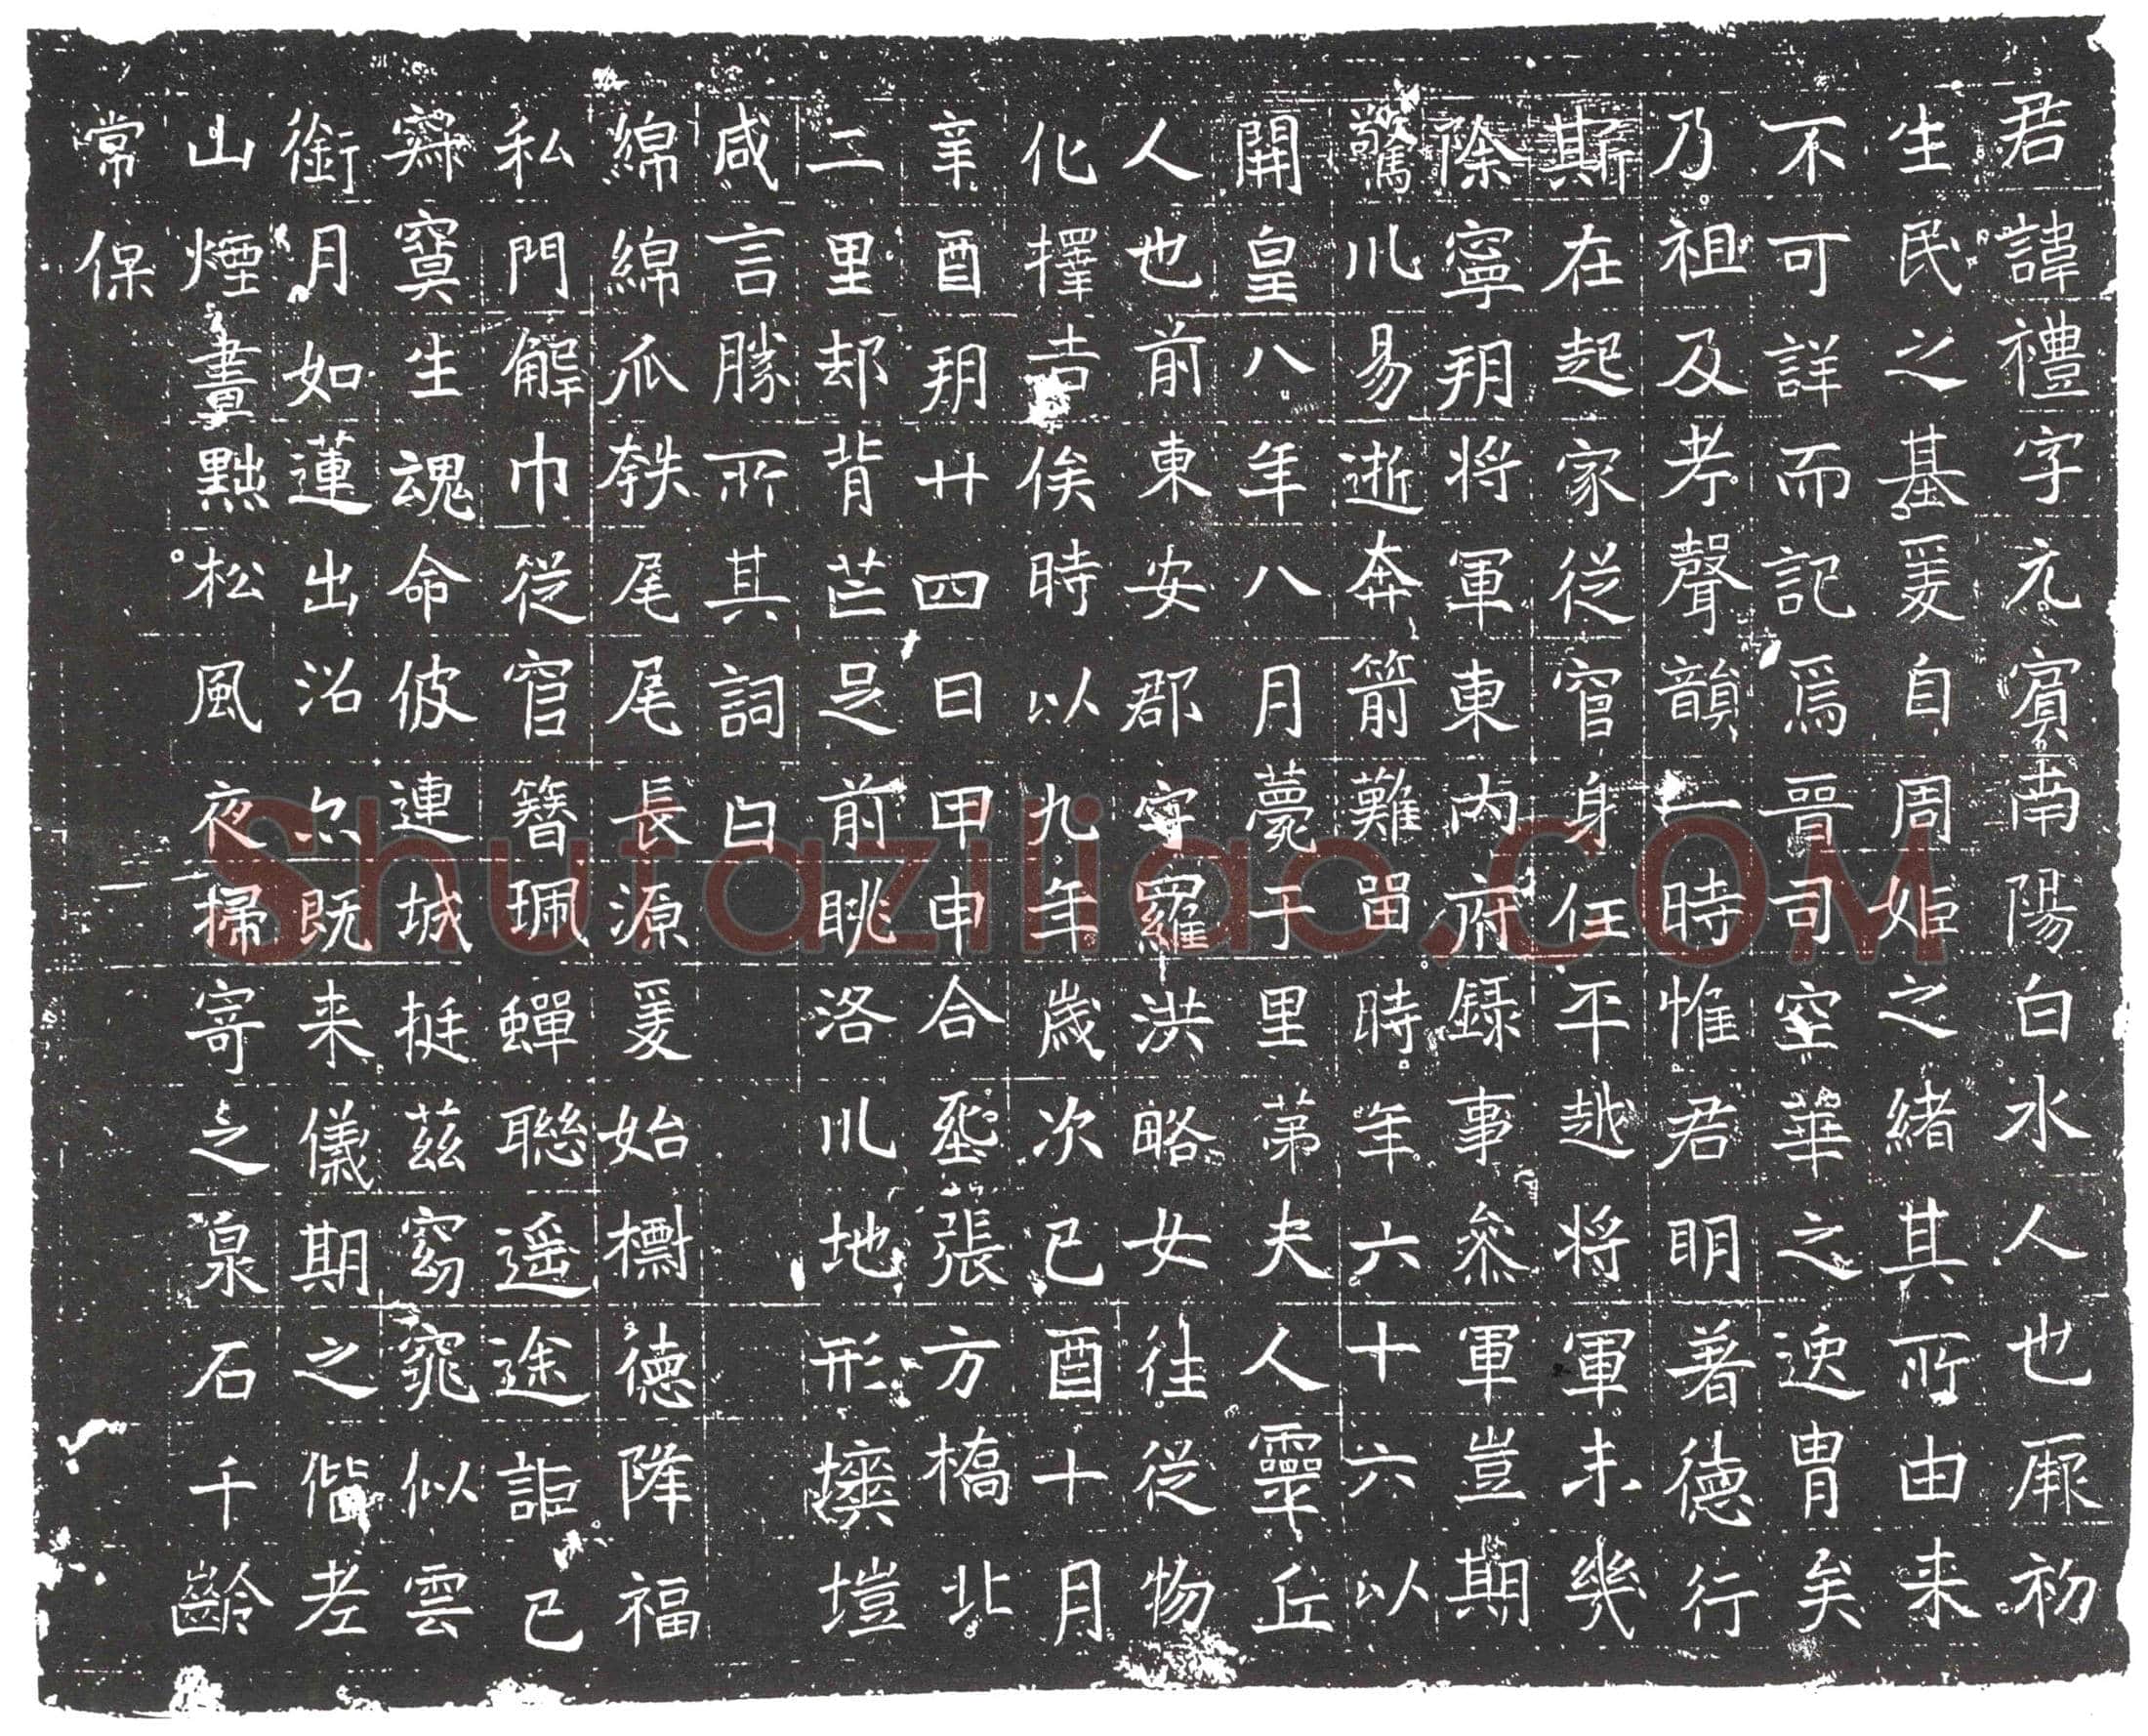 君諱禮字元賓南陽白水人也厥初
生民之基爰自周姬之緒其所由来
不可詳而記焉晋司空華之逸胄矣
乃祖及考聲韻一時惟君明著德行
斯在起家從官身任平越将軍未幾
除寧朔将軍東内府録事叅軍豈期
驚川易逝奔箭難留時年六十六以
開皇八年八月薨于里第夫人靈丘
人也前東安郡守羅洪略女往從物
化擇吉俟時以九年歲次己酉十月
辛酉朔廿四日甲申合塟張方橋北
二里却背芒足前眺洛川地形墺塏
咸言勝所其詞曰
綿綿瓜瓞尾尾長源爰始檦德降福
私門解巾從官簪珮蟬聯遥途詎已
冥生魂命彼連城挺茲窈窕似雲
銜月如蓮出沼尔既来儀期之偕老
山煙晝黯松風夜掃寄之泉石千齡
常保
Shufaziliao.COM